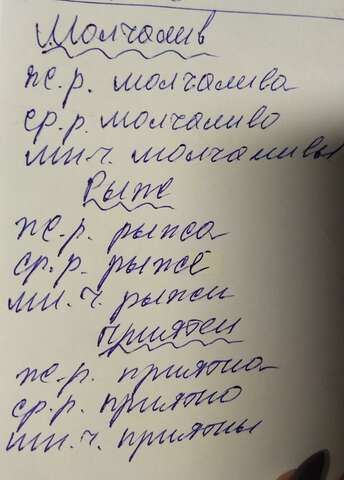 Молчалив
ж.р. молчалива
ср.р. молчаливо
мн.ч. молчаливы
Рыже
ж.р. рыжа
ср.р. рыжё
мн.ч. рыжи
приятен
ж.р. приятна
ср.р. приятно
мн.ч. приятны